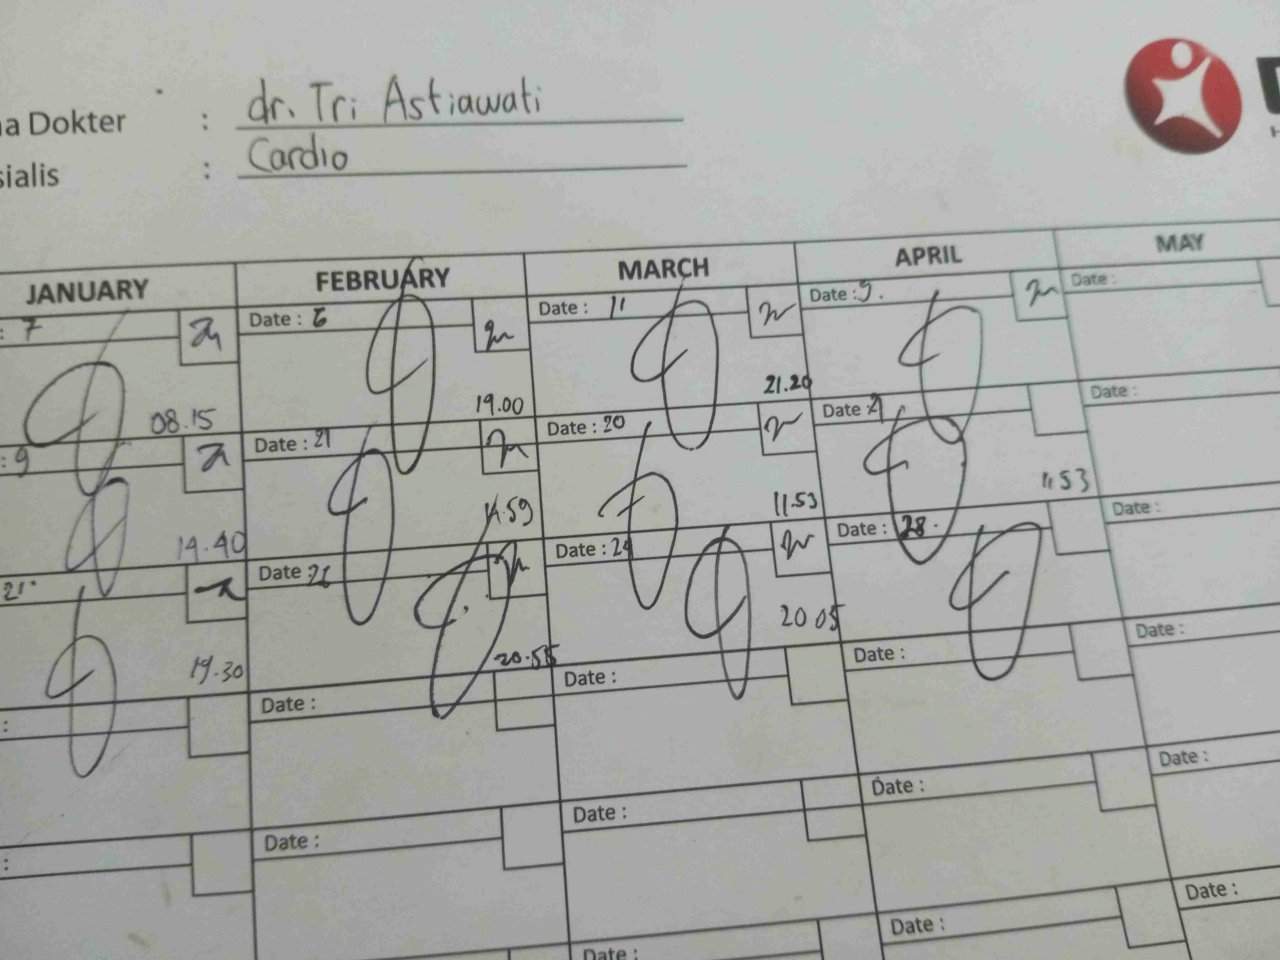 a Dokter : dr. Tri Astiawati
sialis : Cardio
JANUARY FEBRUARY MARCH APRIL MAY
: 7 Date : 6 Date : 11 Date : 9. Date :
08.15 19.00 21.20
: 9 Date : 21 Date : 20 Date : Date :
14.40 14.59 11.53 11.53
21 Date : 26 Date : Date : 28. Date :
19.30 20.55 20 05
: Date : Date : Date : Date :
: Date : Date : Date : Date :
Date : Date : Date :